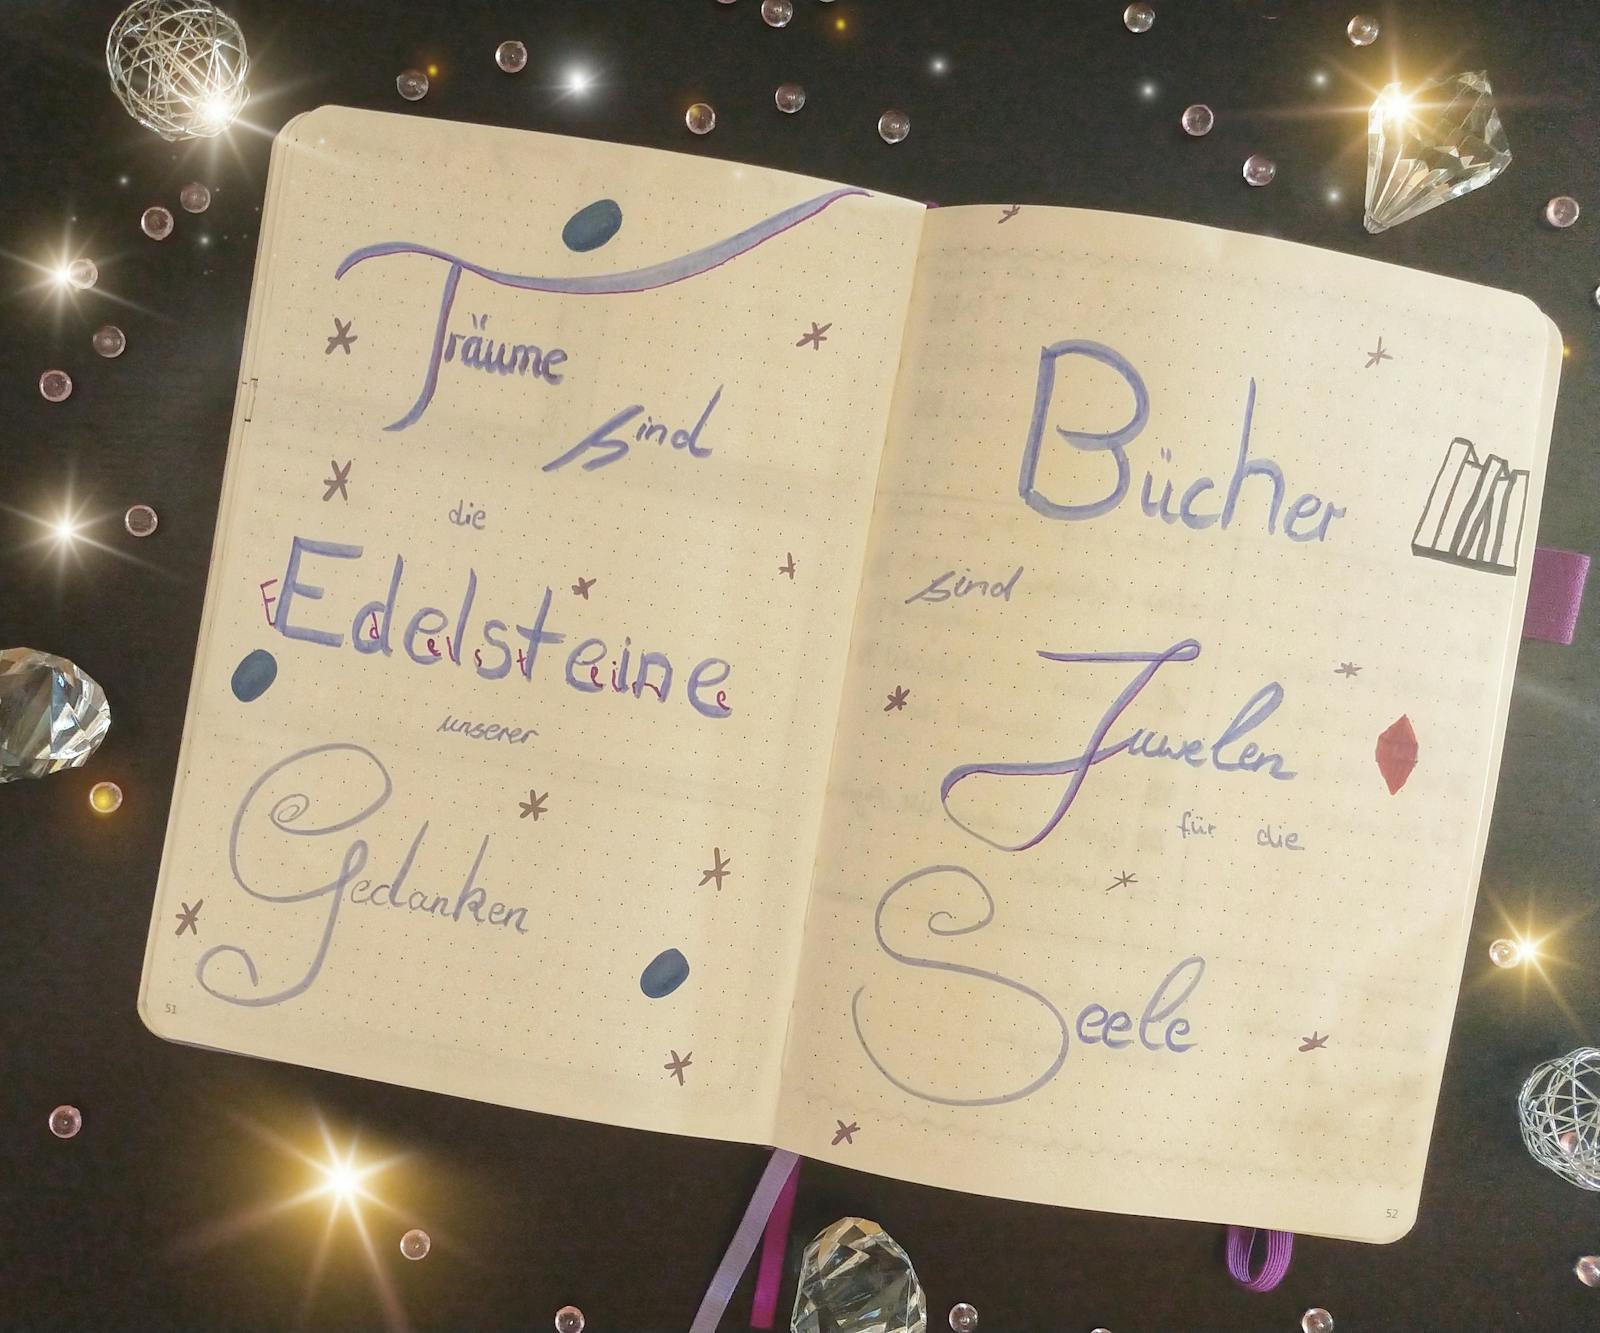 Träume
sind
die
Edelsteine
Edelsteine
unserer
Gedanken
51
Bücher
sind
Juwelen
für die
Seele
52